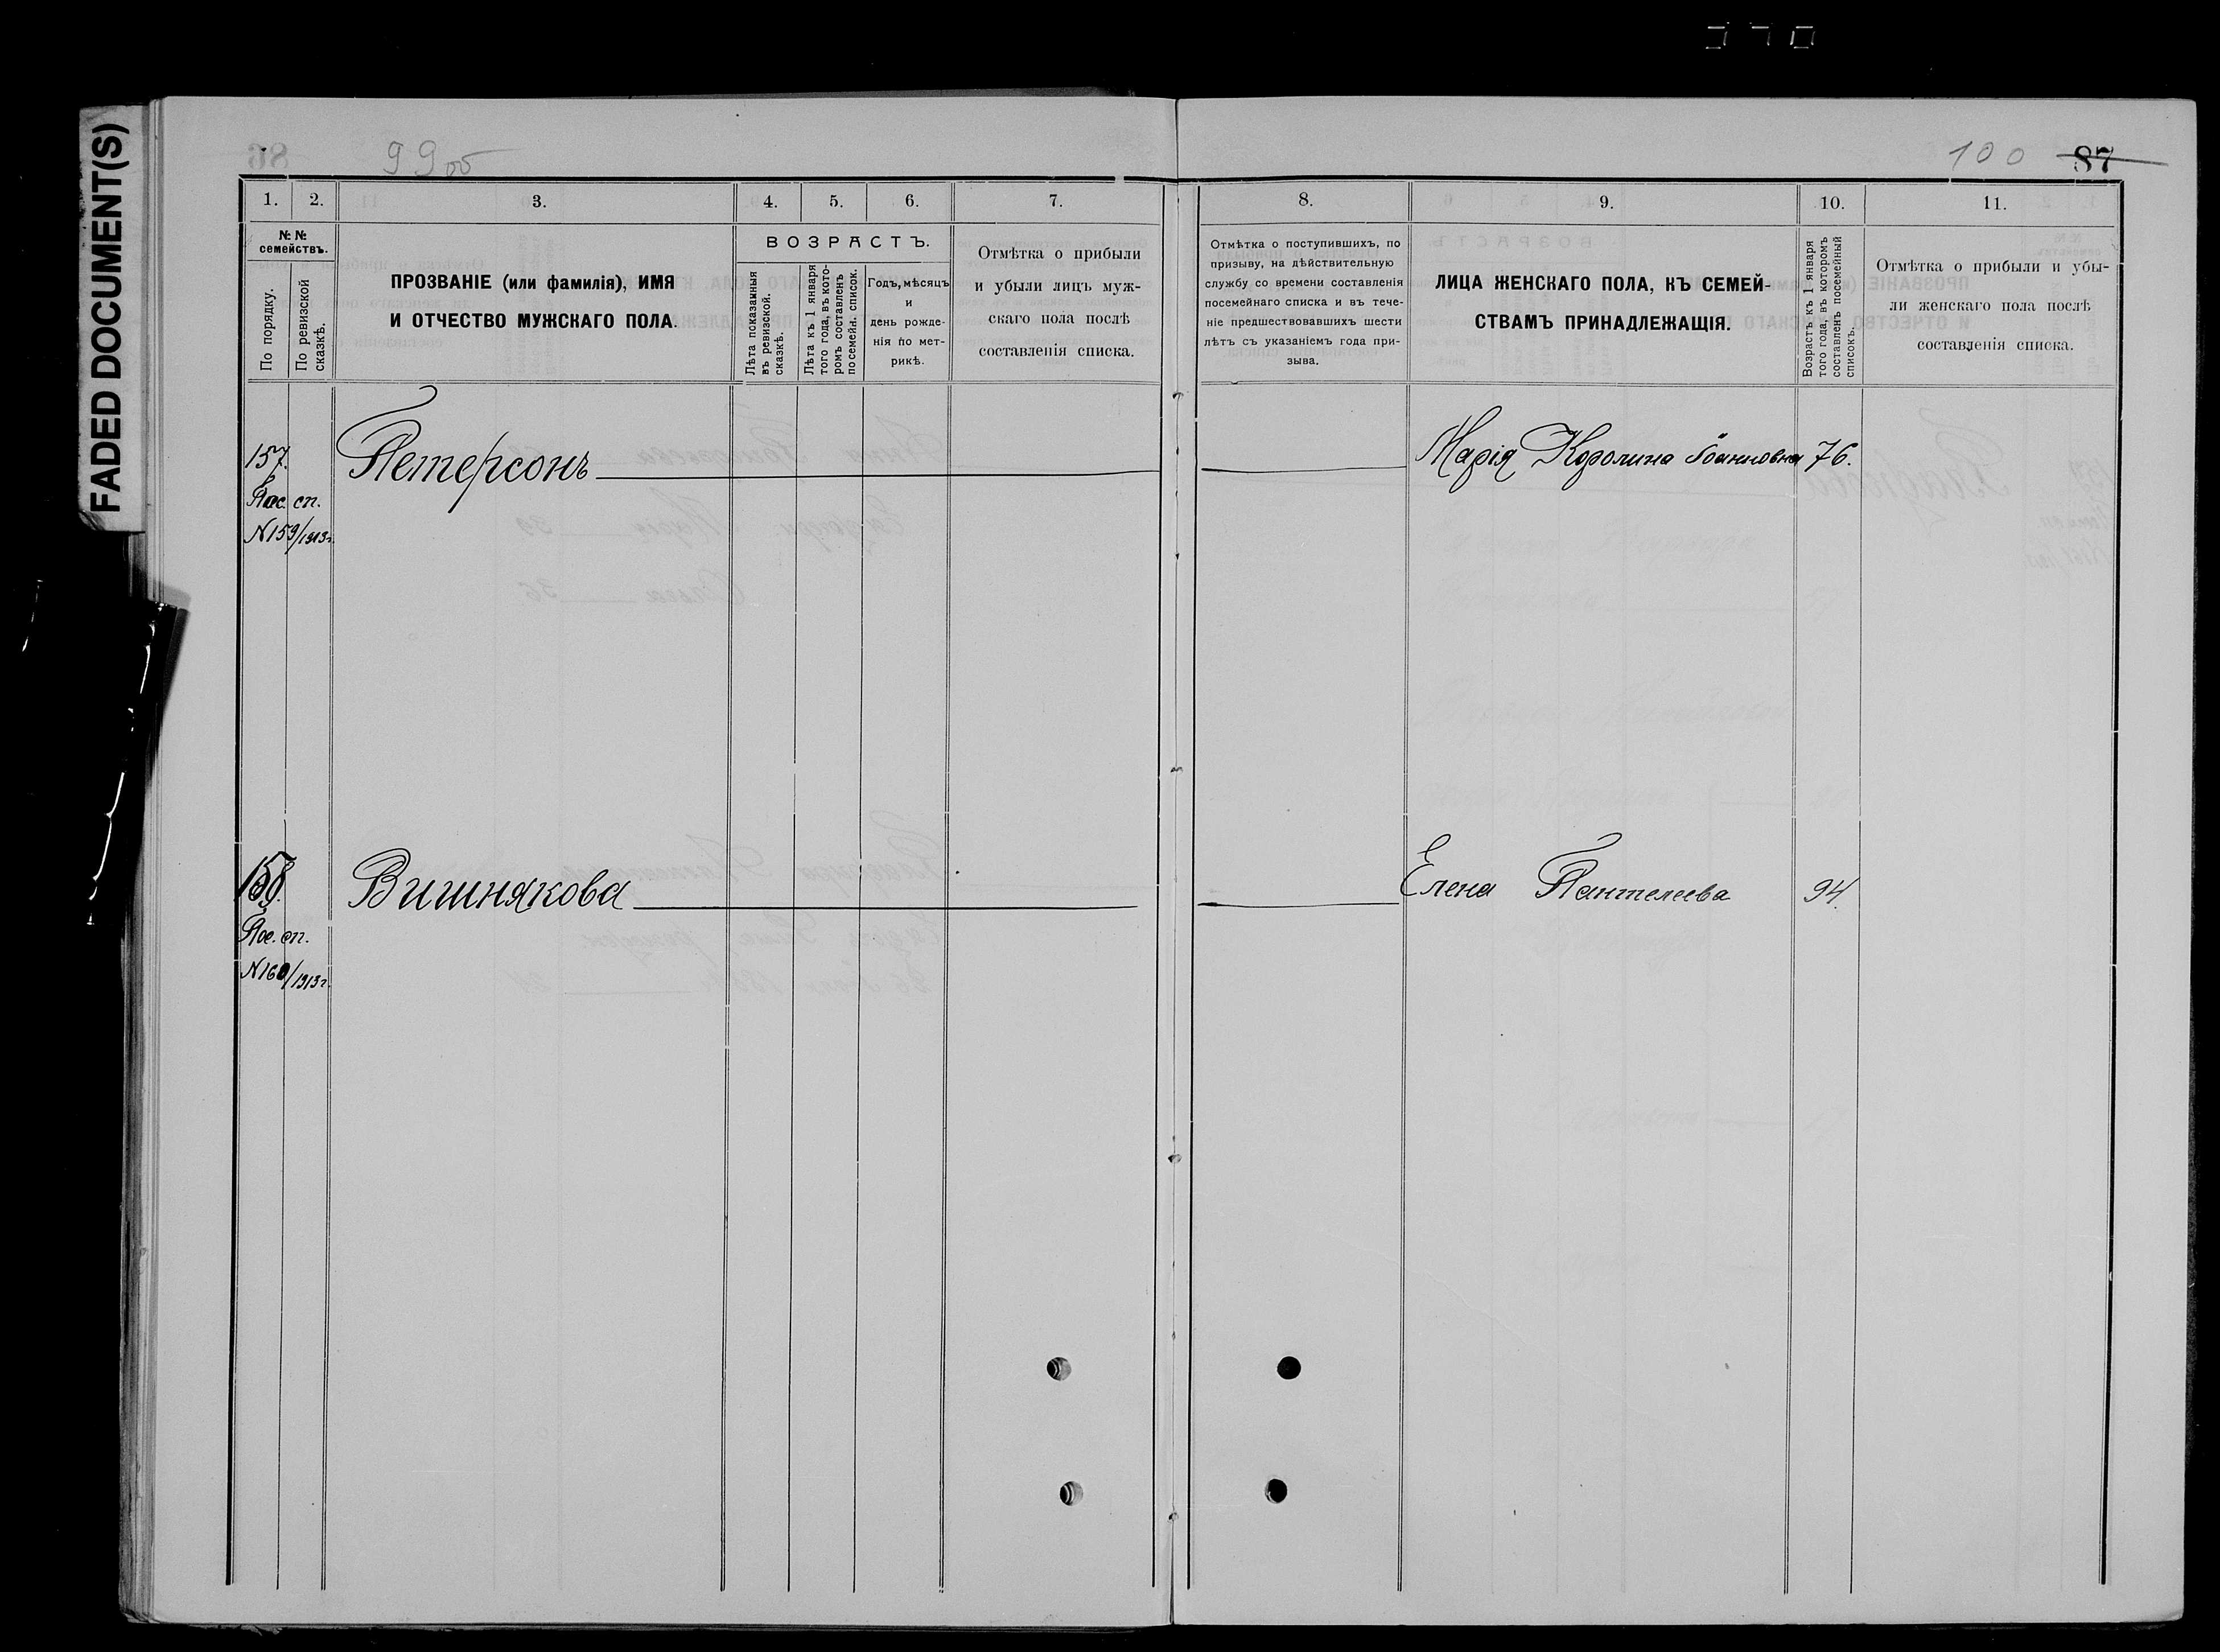 FADED DOCUMENT(S)
99об
100 87
1. 2. 3. 4. 5. 6. 7. 8. 9. 10. 11.
№ №
семействъ.
По порядку.
По ревизской
сказкѣ.
ПРОЗВАНІЕ (или фамилія), ИМЯ
И ОТЧЕСТВО МУЖСКАГО ПОЛА.
ВОЗРАСТЪ.
Лѣта показанныя
въ ревизской.
сказкѣ.
Лѣта къ 1 января
того года, въ кото-
ромъ составленъ
посемейн. списокъ.
Годъ, мѣсяцъ
и
день рожде-
нія по мет-
рикѣ.
Отмѣтка о прибыли
и убыли лицъ муж-
скаго пола послѣ
составленія списка.
Отмѣтка о поступившихъ, по
призыву, на дѣйствительную
службу со времени составленія
посемейнаго списка и въ тече-
ніе предшествовавшихъ шести
лѣтъ съ указаніемъ года при-
зыва.
ЛИЦА ЖЕНСКАГО ПОЛА, КЪ СЕМЕЙ-
СТВАМЪ ПРИНАДЛЕЖАЩІЯ.
Возрастъ къ 1 января
того года, въ которомъ
составленъ посемейный
списокъ.
Отмѣтка о прибыли и убы-
ли женскаго пола послѣ
составленія списка.
157. Петерсонъ Марія Каролина Іоанновна 76.
Пос. сп.
N159/1913г.
158. Вишнякова Елена Пантелеева 94.
Пос. сп.
N160/1913г.